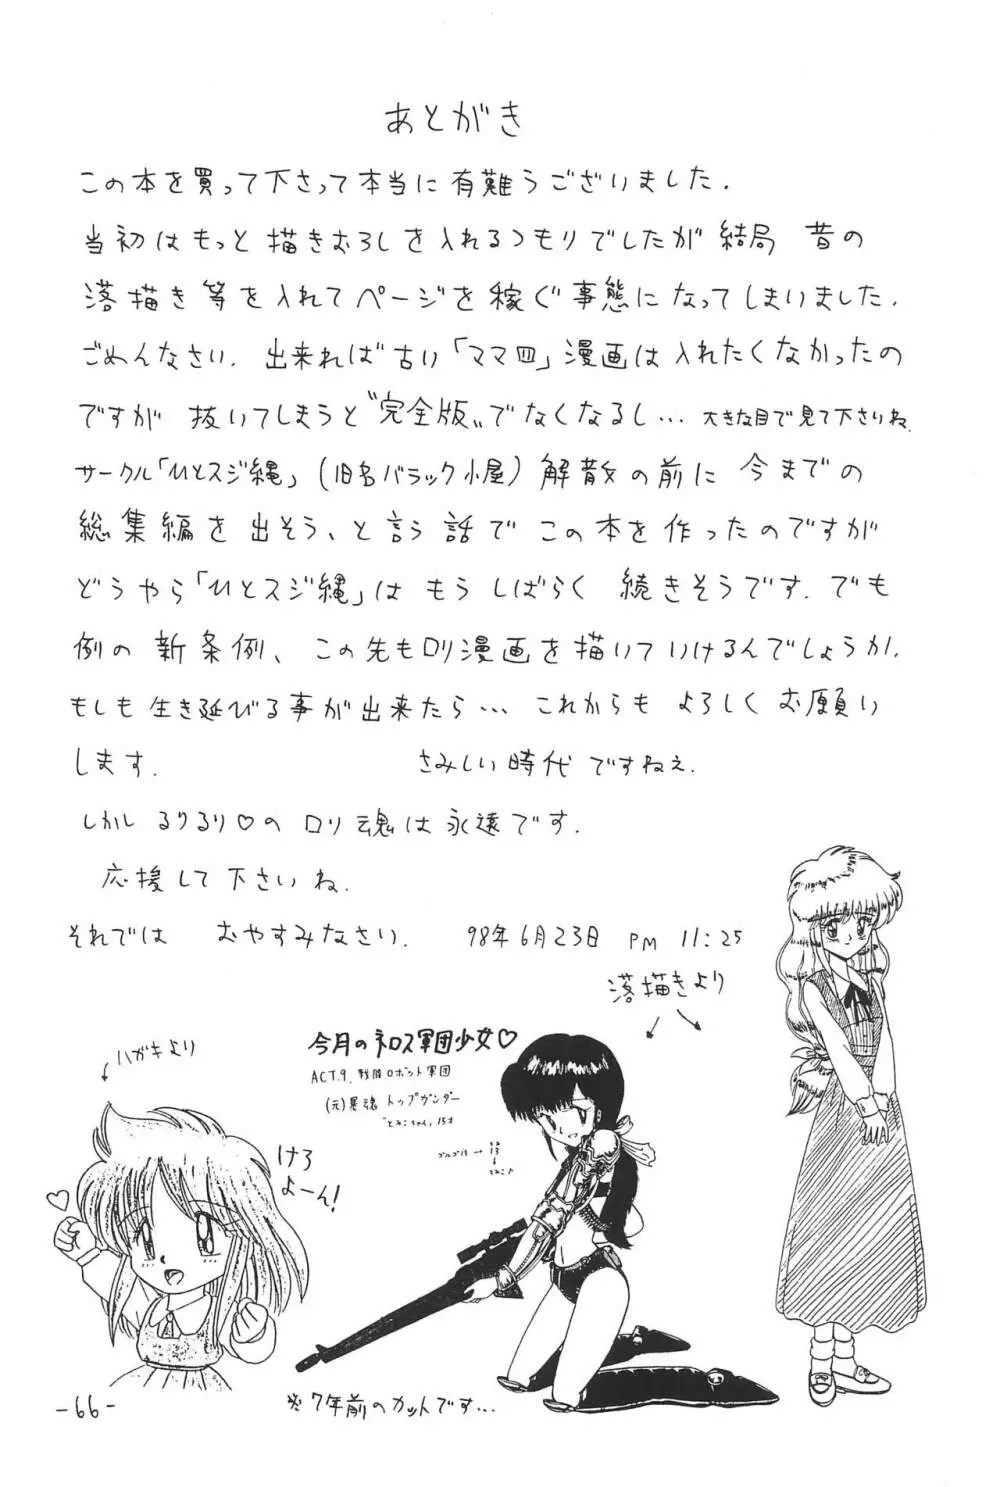 あとがき
この本を買って下さって本当に有難うございました.
当初はもっと描きおろしを入れるつもりでしたが結局 昔の
落描き等を入れてページを稼ぐ事態になってしまいました.
ごめんなさい. 出来れば古い「ママ四」漫画は入れたくなかったの
ですが 抜いてしまうと〝完全版〟でなくなるし… 大きな目で見て下さいね.
サークル「ひとスジ縄」(旧名バラック小屋)解散の前に 今までの
総集編を出そう、と言う話で この本を作ったのですが
どうやら「ひとスジ縄」は もう しばらく 続きそうです. でも
例の 新条例、この先もロリ漫画を描いていけるんでしょうか.
もしも生き延びる事が出来たら… これからも よろしく お願い
します. さみしい時代 ですねぇ.
しかし るりるり♡の ロリ魂は永遠です.
応援して下さいね.
それでは おやすみなさい. 98年6月23日 PM 11:25
落描きより
ハガキより
今月のネロス軍団少女♡
ACT.9. 戦闘ロボット軍団
(元)暴魂 トップガンダー
"とみこちゃん" 15才
ゴルゴ13 → 13
とみこ♪
けろ
よーん!
※7年前のカットです…
-66-